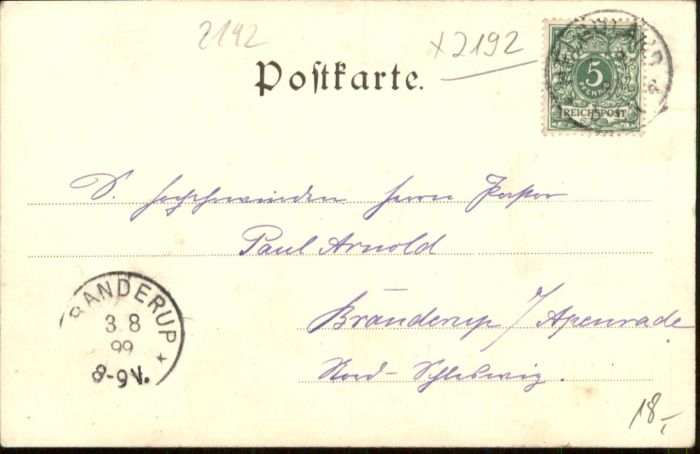 2142
x2192
Postkarte.
5
PFENNIG
REICHSPOST
HELGOLAND
S. Hochehrwürden Herrn Pastor
Paul Arnold
Bränderup / Apenrade
Nord-Schleswig.
BRANDERUP
3 8
99
8-9V.
18,-